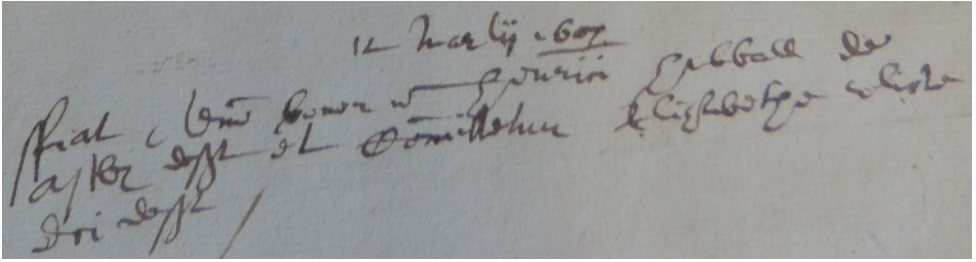 12 Martij 1607
ffiat Com̄ bonor m̄ Henrici Hubball de
after defft et Com̄ittetur Elizabethe relicte
dci defft /